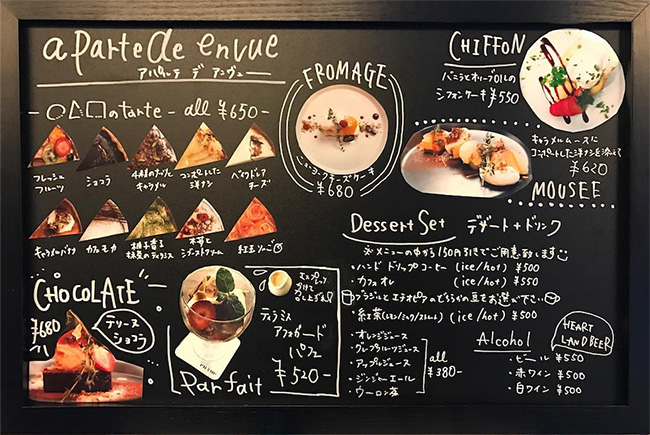 a Parte de envue
アパルッテ デ アンヴュー
○△□のtarte all ¥650-
フレッシュ
フルーツ
ショコラ
4種のナッツと
キャラメル
コンポートした
洋ナシ
ベイクドレア
チーズ
キャラメルバナナ
カフェモカ
柚子香る
抹茶のティラミス
木苺と
紅玉りんご
CHOCOLATE
¥680
テリーヌ
ショコラ
エスプレッソ
かけて
召し上がれ
ティラミス
アフォガード
パフェ
¥520-
Parfait
FROMAGE
ニューヨークチーズケーキ
¥680
CHIFFON
バニラとオリーブOILの
シフォンケーキ ¥550
キャラメルムースに
コンポートした洋ナシを添えて
¥620
MOUSEE
Dessert Set デザート+ドリンク
※メニューの中から150円引きでご用意致します
・ハンドドリップコーヒー (ice/hot) ¥500
・カフェオレ (ice/hot) ¥550
ブラジルとエチオピアのどちらかの豆をお選び下さい
・紅茶(レモン/ミルク/ストレート) (ice/hot) ¥500
・オレンジジュース
・グレープフルーツジュース
・アップルジュース
・ジンジャーエール
・ウーロン茶
all
¥380-
Alcohol
HEART
LAND BEER
・ビール ¥550
・赤ワイン ¥500
・白ワイン ¥500